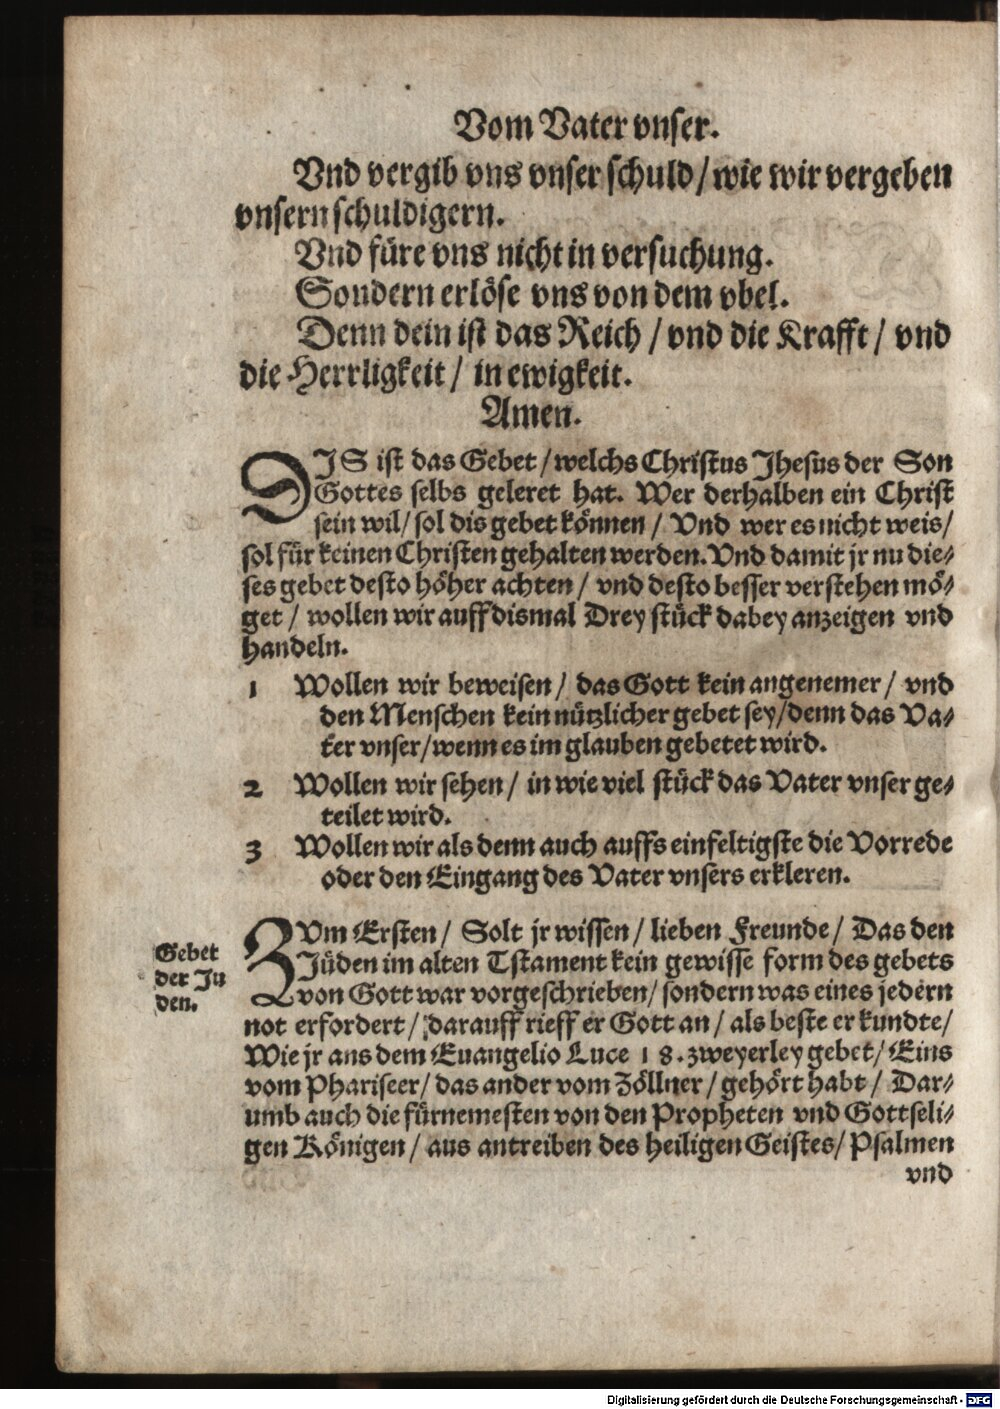 Vom Vater vnser.
Vnd vergib vns vnser schuld / wie wir vergeben
vnsern schuldigern.
Vnd füre vns nicht in versuchung.
Sondern erlöse vns von dem vbel.
Denn dein ist das Reich / vnd die Krafft / vnd
die Herrligkeit / in ewigkeit.
Amen.
DIS ist das Gebet / welchs Christus Jhesus der Son
Gottes selbs geleret hat. Wer derhalben ein Christ
sein wil / sol dis gebet können / Vnd wer es nicht weis /
sol für keinen Christen gehalten werden. Vnd damit jr nu die-
ses gebet desto höher achten / vnd desto besser verstehen mö-
get / wollen wir auff dismal Drey stück dabey anzeigen vnd
handeln.
1 Wollen wir beweisen / das Gott kein angenemer / vnd
den Menschen kein nützlicher gebet sey / denn das Va-
ter vnser / wenn es im glauben gebetet wird.
2 Wollen wir sehen / in wie viel stück das Vater vnser ge-
teilet wird.
3 Wollen wir als denn auch auffs einfeltigste die Vorrede
oder den Eingang des Vater vnsers erkleren.
Gebet
der Jü
den.
ZVm Ersten / Solt jr wissen / lieben Freunde / Das den
Jüden im alten Tstament kein gewisse form des gebets
von Gott war vorgeschrieben / sondern was eines jedern
not erfordert / darauff rieff er Gott an / als beste er kundte /
Wie jr ans dem Euangelio Luce 18. zweyerley gebet / Eins
vom Phariseer / das ander vom Zöllner / gehört habt / Dar-
umb auch die fürnemesten von den Propheten vnd Gottseli-
gen Königen / aus antreiben des heiligen Geistes / Psalmen
vnd
Digitalisierung gefördert durch die Deutsche Forschungsgemeinschaft - DFG